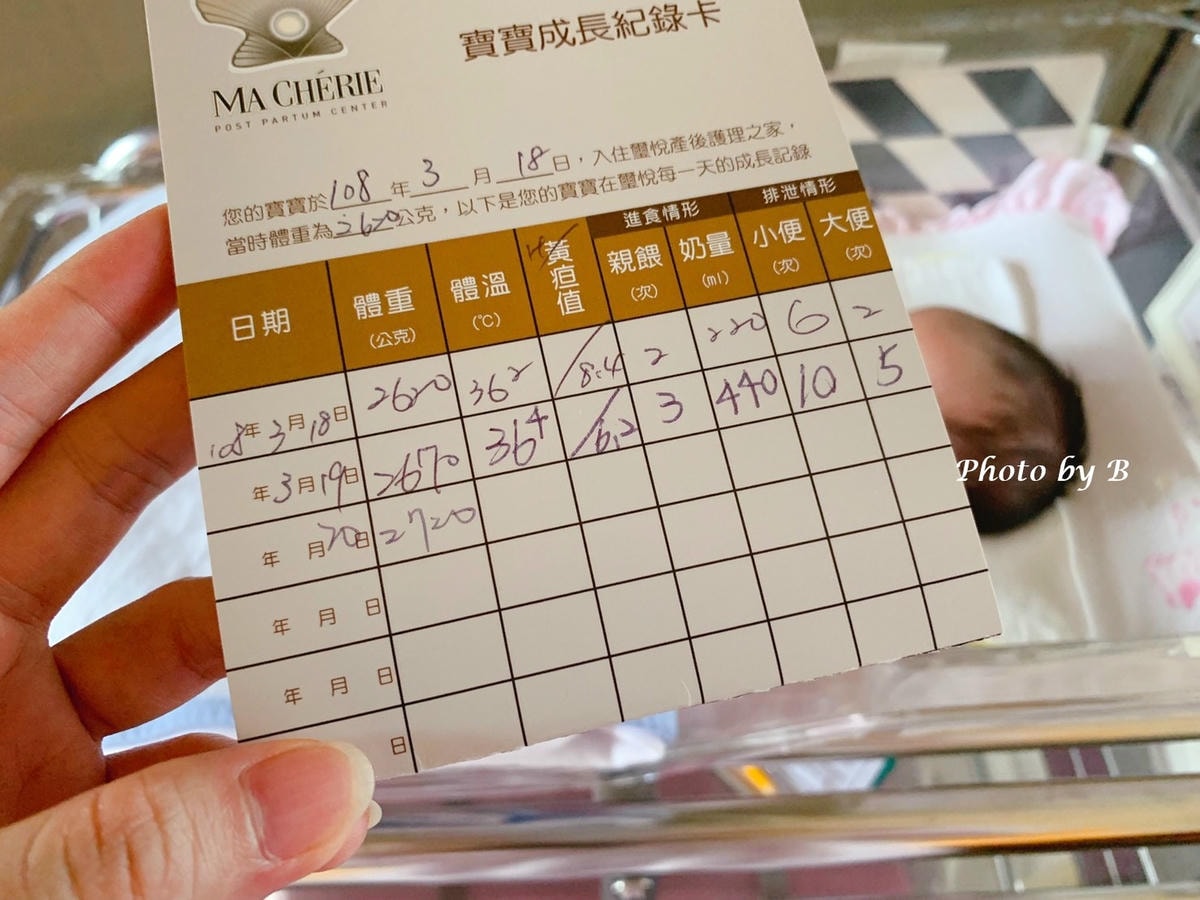 MA CHÉRIE
POST PARTUM CENTER
寶寶成長紀錄卡
您的寶寶於108年3月18日，入住璽悅產後護理之家，
當時體重為2620公克，以下是您的寶寶在璽悅每一天的成長記錄
進食情形 排泄情形
日期 體重 體溫 黃疸值 親餵 奶量 小便 大便
(公克) (℃) (次) (ml) (次) (次)
108年3月18日 2620 36² /8.4 2 220 6 2
年3月19日 2670 36⁴ /6.2 3 440 10 5
年 月20日 2720
年 月 日
年 月 日
日
Photo by B